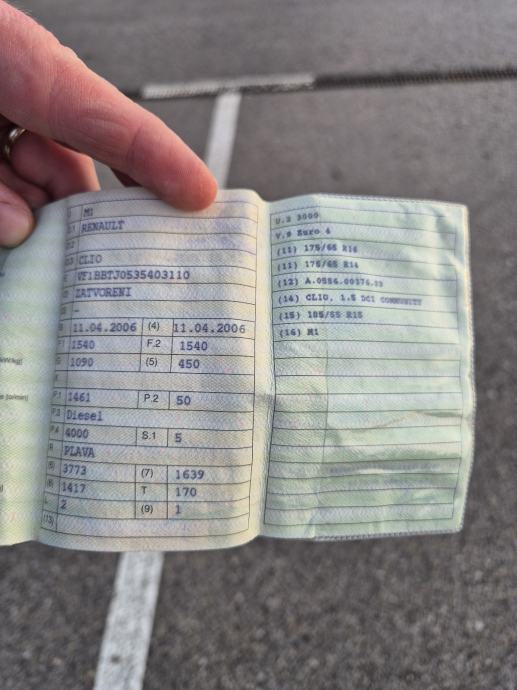 M1
RENAULT
CLIO
VF1BBTJ0535403110
ZATVORENI
-
B 11.04.2006 (4) 11.04.2006
1540 F.2 1540
G 1090 (5) 450
P.1 1461 P.2 50
P.3 Diesel
P.4 4000 S.1 5
R PLAVA
(6) 3773 (7) 1639
(8) 1417 T 170
L 2 (9) 1
(13)
U.2 3000
V.9 Euro 4
(11) 175/65 R14
(12)
(14) CLIO, 1.5 DCI COMMUNITY
(15) 185/55 R15
(16) M1